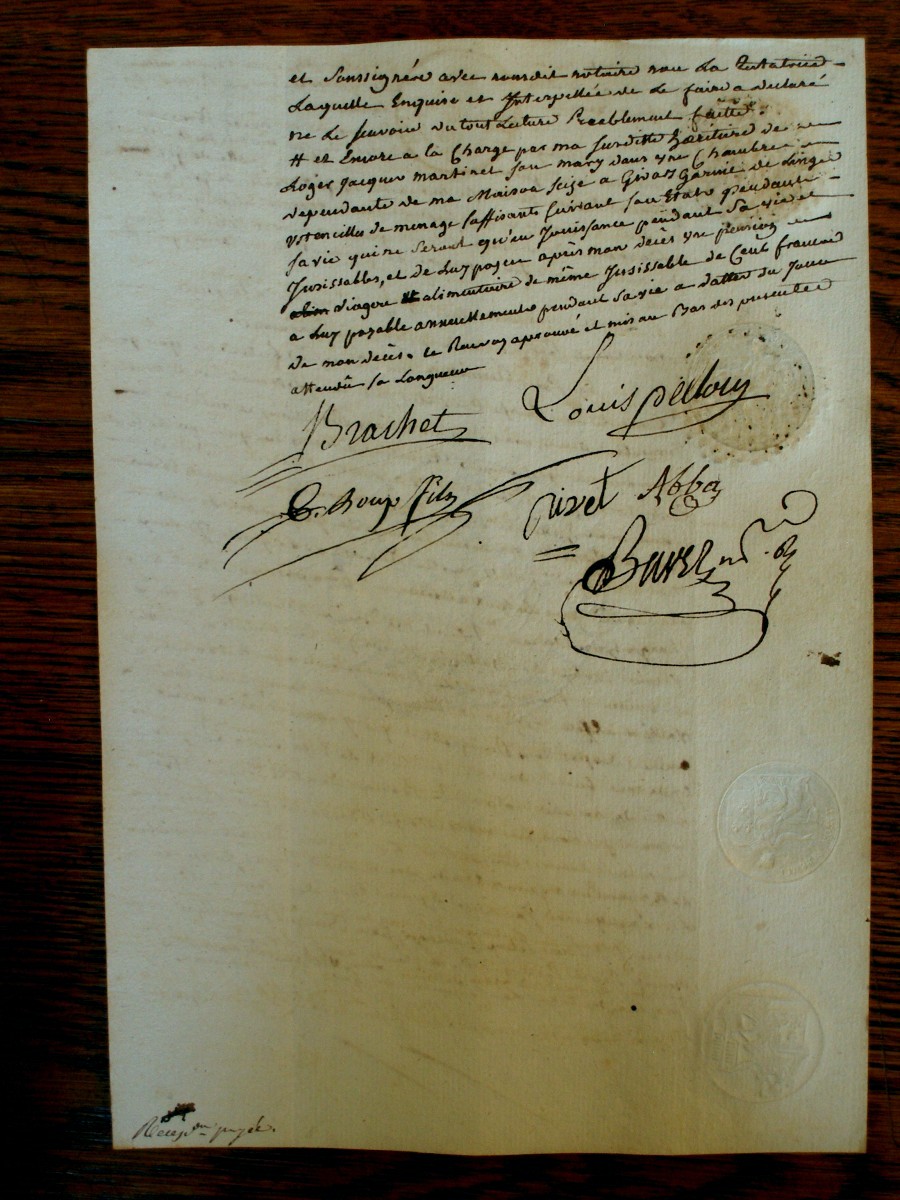 et Soussignéré avec nousdit notaire non La Testatrice
Laquelle Enquise et Interpellée de Le faire a declaré
ne Le Scavoir du tout Lecture Reeblement faitte.
# et Encore a la Charge par ma Susditte heritiere de
Loger Jacques martinet Son mary dans vne Chambre
dependante de ma Maison Scize a Givors Garnie de Linge
vstencilles de menage Suffisants Suivant Son Etat pendant
Sa vie qui ne Seront qu'en Jouissance pendant Sa vie et
Insisissables, et de Luy payer après mon decès vne pension
viagere alimentaire de même Insisissable de Cent francs
a Luy payable annuellement pendant Sa vie a datter du Jour
de mon decès. Le Renvoy aprouvé et mis au Bas des presentes
attendû Sa Longueur
Brachet Louis
C. Roux fils Rivet Abbé